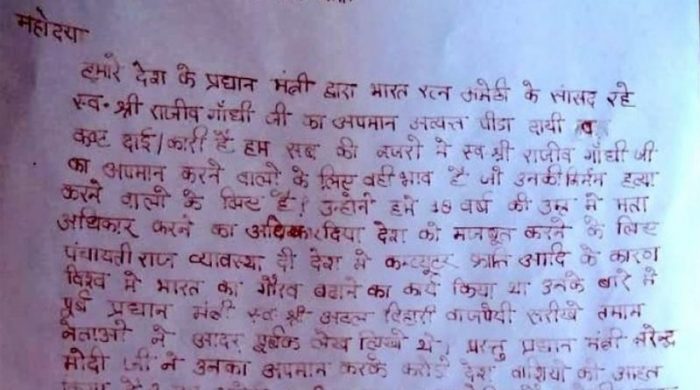 महोदया
हमारे देश के प्रधान मंत्री द्वारा भारत रत्न अमेठी के सांसद रहे
स्व. श्री राजीव गाँधी जी का अपमान अत्यन्त पीडा दायी व
कष्ट दाई/कारी है हम सब की नजरो मे स्व श्री राजीव गाँधी जी
का अपमान करने वालो के लिए वही भाव है जो उनकी निर्मम हत्या
करने वालो के लिए है! उन्होंने हमे 18 वर्ष की उम्र मे मता
अधिकार करने का अधिकार दिया देश को मजबूत करने के लिए
पंचायती राज व्यावस्था दी देश मे कम्प्यूटर क्रान्ति आदि के कारण
विश्व मे भारत का गौरव बढाने का कार्य किया था उनके बारे मे
पूर्व प्रधान मंत्री स्व श्री अटल बिहारी वाजपेयी सरीखे तमाम
नेताओ ने आदर पूर्वक लेख लिखे थे, परन्तु प्रधान मंत्री नरेन्द्र
मोदी जी ने उनका अपमान करके करोडो देश वाशियो को आहत
किया है